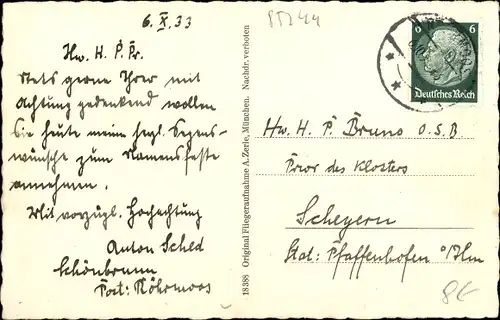 6. X. 33
Hw. H. P. Pr.
Stets gerne Ihrer mit
Achtung gedenkend wollen
Sie heute meine herzl. Segens-
wünsche zum Namensfeste
annehmen.
Mit vorzügl. Hochachtung
Anton Sched
Schönbrunn
Post: Röhrmoos
18386 Original Fliegeraufnahme A. Zerle, München. Nachdr. verboten
6 6
Deutsches Reich
Hw. H. P. Bruno O.S.B.
Prior des Klosters
Scheyern
Stat: Pfaffenhofen a/Ilm